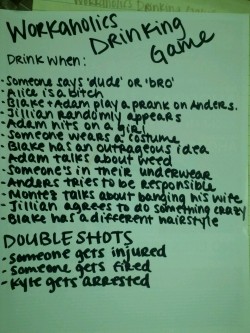 WORKAHOLICS
DRINKING
GAME
DRINK WHEN:
-Someone says 'dude' OR 'bro'
-Alice is a bitch
-Blake + Adam play a prank on Anders.
-Jillian randomly appears
-Adam hits on a girl
-Someone wears a costume
-Blake has an outrageous idea
-Adam talks about weed
-Someone's in their underwear
-Anders tries to be responsible
-Montez talks about banging his wife
-Jillian agrees to do something crazy
-Blake has a different hairstyle
DOUBLE SHOTS
-Someone gets injured
-Someone gets fired
-Kyle gets arrested